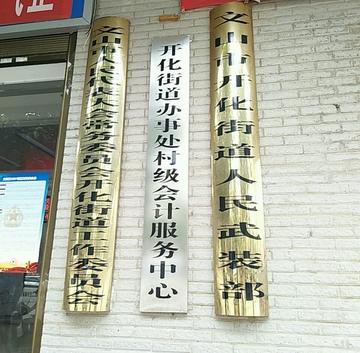 文山市人民代表大会常务委员会开化街道工作委员会
开化街道办事处村级会计服务中心
文山市开化街道人民武装部